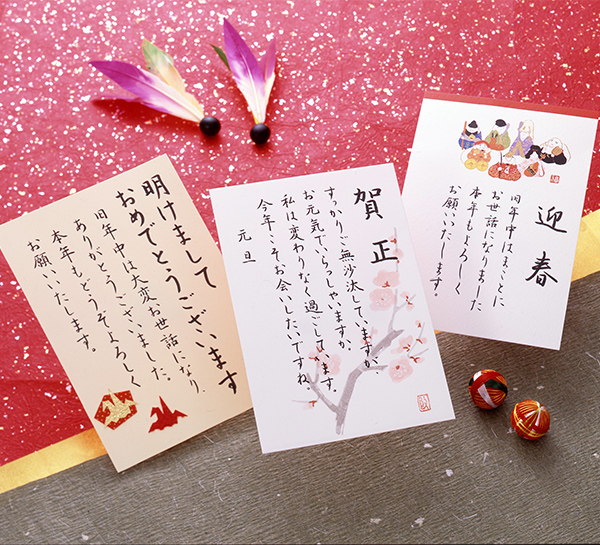 明けまして
おめでとうございます
旧年中は大変お世話になり、
ありがとうございました。
本年もどうぞよろしく
お願いいたします。
賀正
すっかりご無沙汰していますが、
お元気でいらっしゃいますか。
私は変わりなく過ごしています。
今年こそお会いしたいですね。
元旦
迎春
旧年中はまことに
お世話になりました
本年もよろしく
お願いいたします。